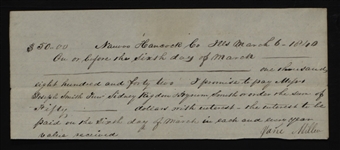 $50.00 Nauvoo Hancock Co Ills March 6 1840
On or before the Sixth day of March one thousand
eight hundred and forty two I promise to pay Messrs
Joseph Smith Junr Sidney Rigdon Hyrum Smith or order the sum of
Fifty dollars with interest the interest to be
paid on the Sixth day of March in each and every year
value received
Miller